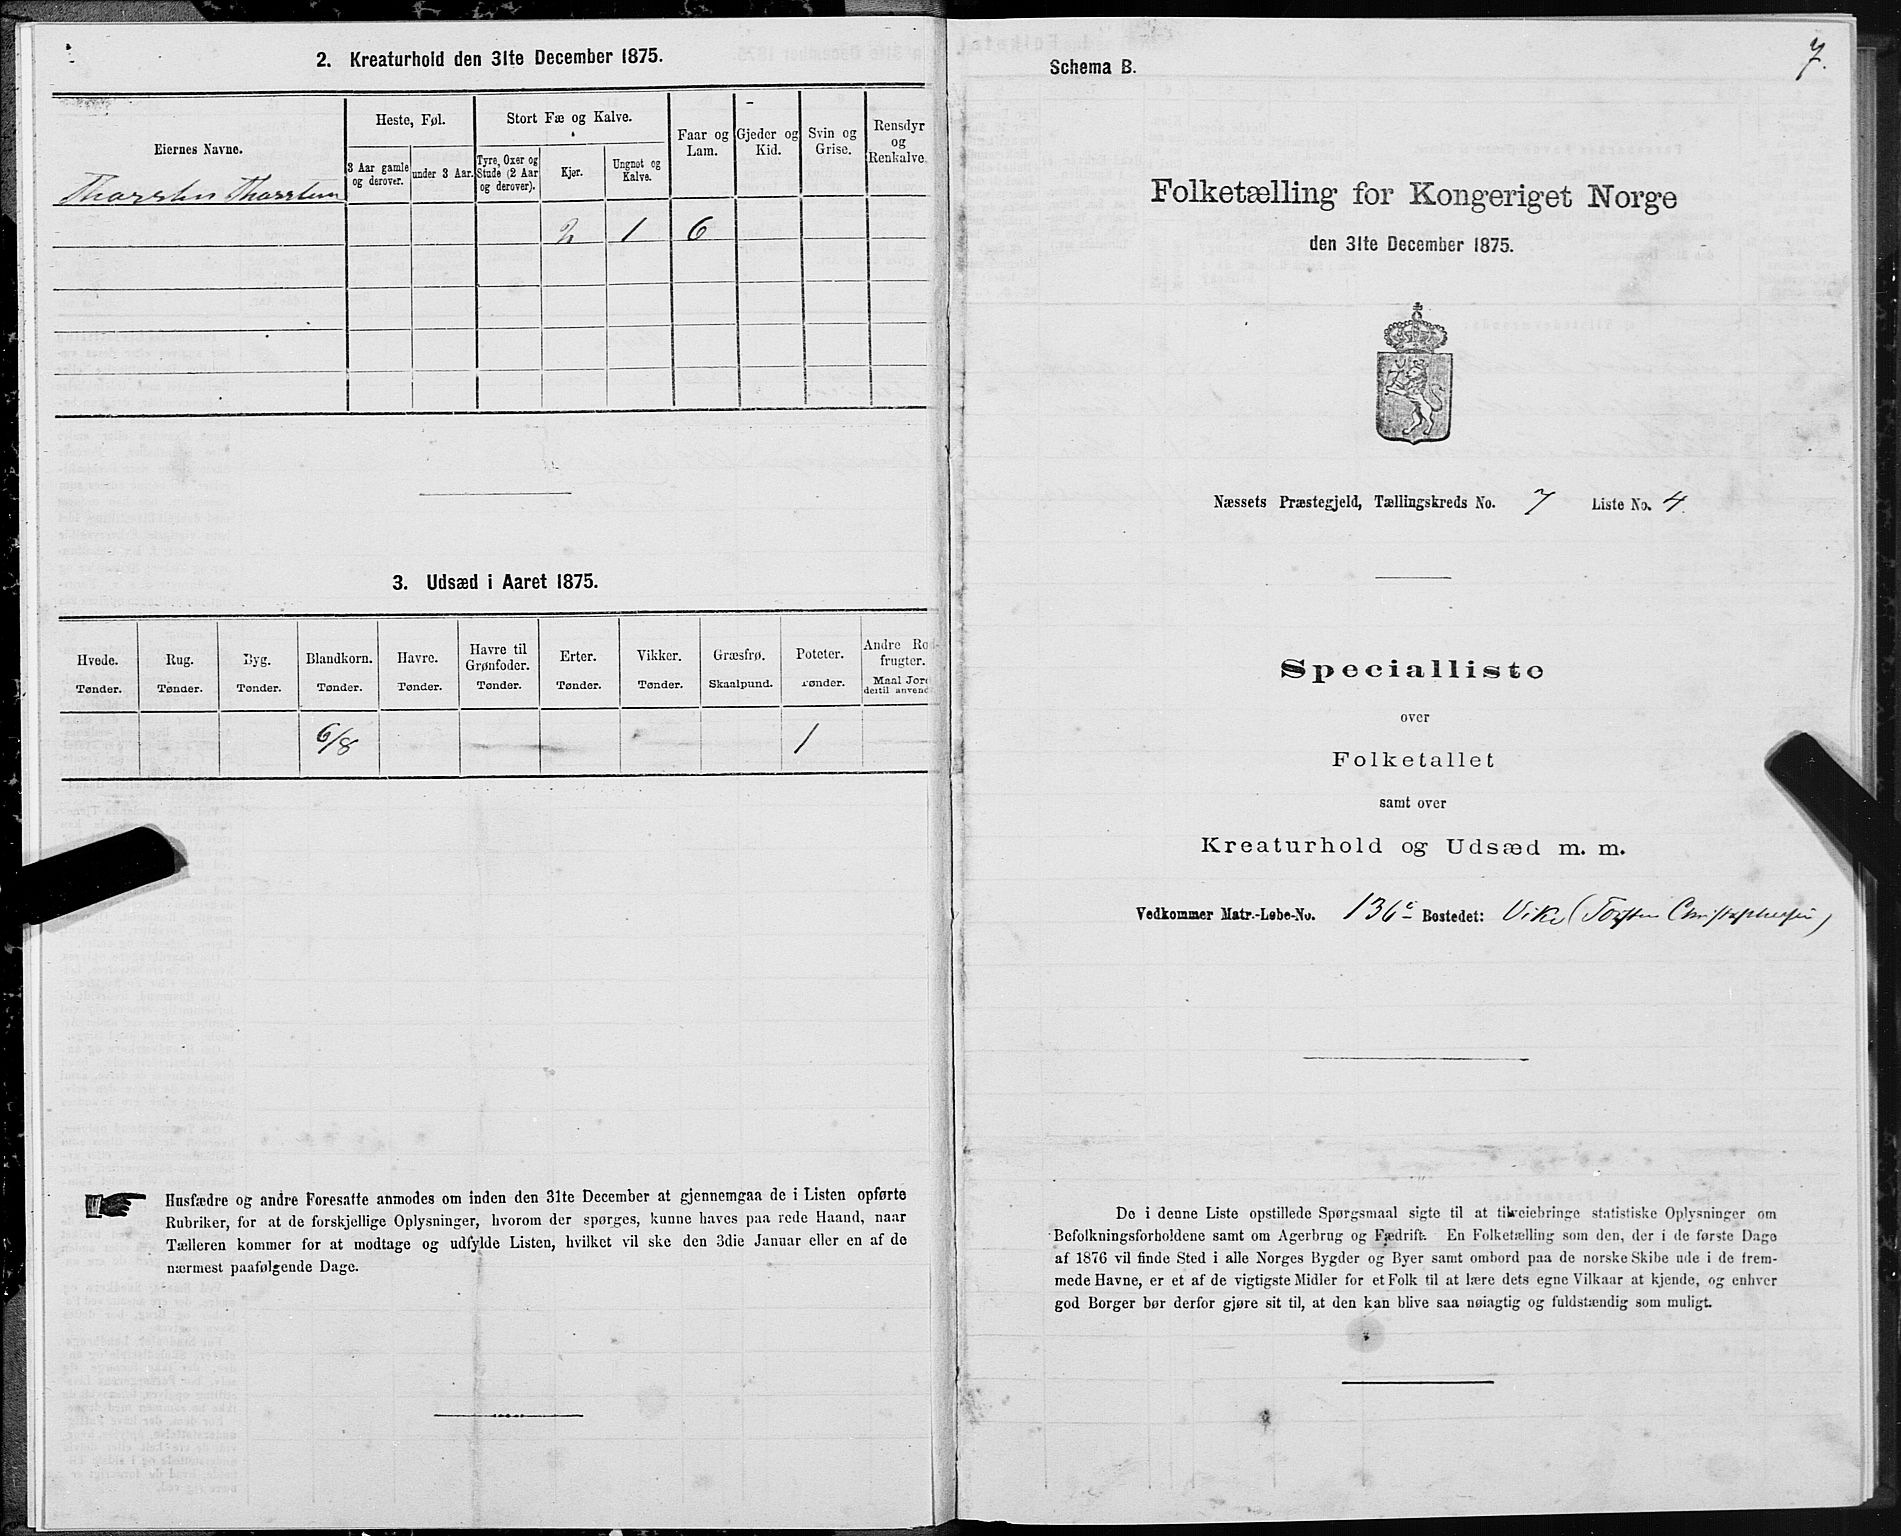 2. Kreaturhold den 31te December 1875.
Eiernes Navne.
Heste, Føl.
Stort Fæ og Kalve.
Faar og Lam.
Gjeder og Kid.
Svin og Grise.
Rensdyr og Renkalve.
3 Aar gamle og derover.
under 3 Aar.
Tyre, Oxer og Stude (2 Aar og derover).
Kjør.
Ungnøt og Kalve.
Thorsten Thorsten
2 1 6
3. Udsæd i Aaret 1875.
Hvede. Rug. Byg. Blandkorn. Havre. Havre til Grønfoder. Erter. Vikker. Græsfrø. Poteter. Andre Rod-frugter.
Tønder. Tønder. Tønder. Tønder. Tønder. Tønder. Tønder. Tønder. Skaalpund. Tønder. Maal Jord dertil anvendt
6/8 1
Husfædre og andre Foresatte anmodes om inden den 31te December at gjennemgaa de i Listen opførte
Rubriker, for at de forskjellige Oplysninger, hvorom der spørges, kunne haves paa rede Haand, naar
Tælleren kommer for at modtage og udfylde Listen, hvilket vil ske den 3die Januar eller en af de
nærmest paafølgende Dage.
7.
Schema B.
Folketælling for Kongeriget Norge
den 31te December 1875.
Næssets Præstegjeld, Tællingskreds No. 7 Liste No. 4.
Specialliste
over
Folketallet
samt over
Kreaturhold og Udsæd m. m.
Vedkommer Matr.-Løbe-No. 136 c Bostedet: Vike (Torsten Christophersen)
De i denne Liste opstillede Spørgsmaal sigte til at tilveiebringe statistiske Oplysninger om
Befolkningsforholdene samt om Agerbrug og Fædrift. En Folketælling som den, der i de første Dage
af 1876 vil finde Sted i alle Norges Bygder og Byer samt ombord paa de norske Skibe ude i de frem-
mede Havne, er et af de vigtigste Midler for et Folk til at lære dets egne Vilkaar at kjende, og enhver
god Borger bør derfor gjøre sit til, at den kan blive saa nøiagtig og fuldstændig som muligt.